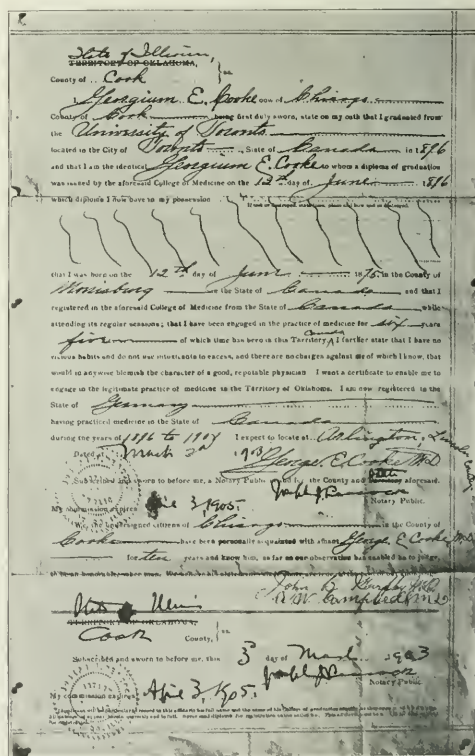 State of Illinois,
TERRITORY OF OKLAHOMA, } ss.
County of Cook
Georgium E. Cooke now of Chicago
County of Cook being first duly sworn, state on my oath that I graduated from
the University of Toronto
located in the City of Toronto, State of Canada in 1896
and that I am the identical Georgium E. Cooke to whom a diploma of graduation
was issued by the aforesaid College of Medicine on the 12th day of June 1896
which diploma I now have in my possession
If lost or destroyed, state how lost or destroyed.
that I was born on the 12th day of June 1875 in the County of
Morrisburg or the State of Canada and that I
registered in the aforesaid College of Medicine from the State of Canada while
attending its regular sessions; that I have been engaged in the practice of medicine for six years
five of which time has been in this Territory Canada I further state that I have no
vicious habits and do not use intoxicants to excess, and there are no charges against me of which I know, that
would in anywise blemish the character of a good, reputable physician I want a certificate to enable me to
engage in the legitimate practice of medicine in the Territory of Oklahoma. I am now registered in the
State of Germany
having practiced medicine in the State of Canada
during the years of 1896 to 1904 I expect to locate at Arlington, Lincoln
Dated March 2d 1903 George E. Cooke MD
Subscribed and sworn to before me, a Notary Public the County and State aforesaid.
Joseph J.
My commission expires April 3, 1905. Notary Public.
We, the undersigned citizens of Chicago in the County of
Cooke have been personally acquainted with affiant George E Cooke MD
for ten years and know him, so far as our observation has enabled us to judge,
John B. Murphy MD
Campbell MD
State Illinois
TERRITORY OF OKLAHOMA, } ss.
Cook County,
Subscribed and sworn to before me, this 3d day of March 1903
Joseph J.
My commission expires April 3, 1905. Notary Public